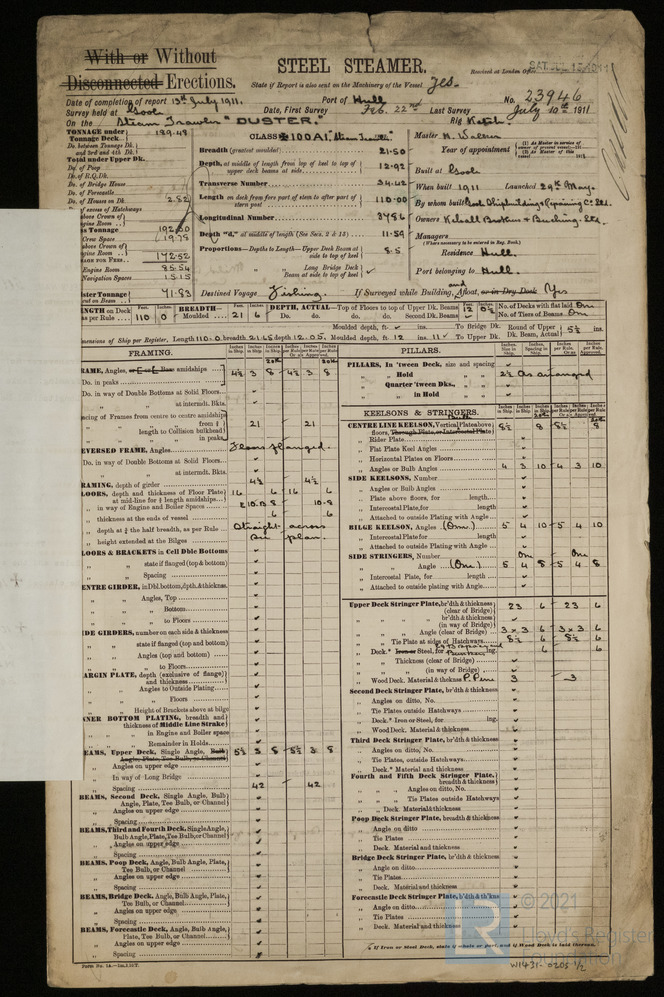 With or Without
Disconnected Erections.
STEEL STEAMER.
Received at London Office SAT. JUL 15 1911
State if Report is also sent on the Machinery of the Vessel Yes.
Date of completion of report 13th July 1911. Port of Hull No. 23946
Survey held at Goole Date, First Survey Feb. 22nd Last Survey July 10th 1911
On the Steam Trawler "DUSTER." Rig Ketch.
TONNAGE under Tonnage Deck 189.48
CLASS 100A1. "Steam Trawler"
Master H. Walker
Year of appointment
Breadth (greatest moulded) 21.50
Depth, at middle of length from top of keel to top of upper deck beams at side 12.92
Transverse Number 34.42
Length on deck from fore part of stem to after part of stern post 110.00
Longitudinal Number 3786
Depth "d," at middle of length (See Secs. 2 & 13) 11.59
Proportions—Depths to Length—Upper Deck Beam at side to top of keel 8.5
Long Bridge Deck Beam at side to top of keel
Built at Goole
When built 1911 Launched 29th May.
By whom built Goole Shipbuilding & Repairing Co. Ltd.
Owners Kelsall Brothers & Beeching Ltd.
Managers
(Where necessary to be entered in Reg. Book.)
Residence Hull.
Port belonging to Hull.
Do. between Tonnage Dk. and 3rd and 4th Dk.
Total under Upper Dk.
Do. of Poop
Do. of R.Q.Dk.
Do. of Bridge House
Do. of Forecastle
Do. of Houses on Dk. 2.82
of excess of Hatchways
Tonnage 192.30
Crew Space 19.78
172.52
Engine Room 85.54
Navigation Spaces 15.15
Tonnage 71.83
Destined Voyage Fishing. If Surveyed while Building, and Afloat, or in Dry Dock Yes
LENGTH on Deck as per Rule 110 0 BREADTH— Moulded 21 6 DEPTH, ACTUAL—Top of Floors to top of Upper Dk. Beams 12 0½ No. of Decks with flat laid One
Do. do. Second Dk. Beams No. of Tiers of Beams One
Dimensions of Ship per Register, Length 110.0 breadth 21.65 depth 12.05. Moulded depth, ft. To Bridge Dk. Round of Upper Dk. Beam, Actual 5½ ins.
Moulded depth, ft. 12 ins. 11 To Upper Dk.
FRAMING.
FRAME, Angles, amidships 4½ 3 8 4½ 3 8
Do. in peaks
Do. in way of Double Bottoms at Solid Floors
at intermdt. Bkts.
Spacing of Frames from centre to centre amidships 21 21
length to Collision bulkhead
in peaks
REVERSED FRAME, Angles Floors flanged.
Do. in way of Double Bottoms at Solid Floors
at intermdt. Bkts.
FRAMING, depth of girder 4½ 4½
FLOORS, depth and thickness of Floor Plate at mid-line for ½ length amidships 16 6 16 6
in way of Engine and Boiler Spaces 10.8 10.8
thickness at the ends of vessel 6 6
depth at ¾ the half breadth, as per Rule Straight across
height extended at the Bilges on plan.
FLOORS & BRACKETS in Cell Dble Bottoms
state if flanged (top & bottom)
Spacing
CENTRE GIRDER, in Dbl. bottom, dpth. & thickness.
Angles, Top
Bottom
to Floors
SIDE GIRDERS, number on each side & thickness
state if flanged (top and bottom)
Angles (top and bottom)
to Floors
MARGIN PLATE, depth (exclusive of flange) and thickness
Angles to Outside Plating
Floors
Height of Brackets above at bilge
INNER BOTTOM PLATING, breadth and thickness of Middle Line Strake
in Engine and Boiler space
Remainder in Holds
BEAMS, Upper Deck, Single Angle, Bulb Angle, Plate, Tee Bulb, or Channel 5½ 3 8 5½ 3 8
Angles on upper edge
In way of Long Bridge
Spacing 42 42
BEAMS, Second Deck, Single Angle, Bulb Angle, Plate, Tee Bulb, or Channel
Angles on upper edge
Spacing
BEAMS, Third and Fourth Deck, Single Angle, Bulb Angle, Plate, Tee Bulb, or Channel
Angles on upper edge
Spacing
BEAMS, Poop Deck, Angle, Bulb Angle, Plate, Tee Bulb, or Channel
Angles on upper edge
Spacing
BEAMS, Bridge Deck, Angle, Bulb Angle, Plate, Tee Bulb, or Channel
Angles on upper edge
Spacing
BEAMS, Forecastle Deck, Angle, Bulb Angle, Plate, Tee Bulb, or Channel
Angles on upper edge
Spacing
PILLARS.
PILLARS, In 'tween Deck, size and spacing
Hold 2½ As arranged
Quarter 'tween Dks.,
in Hold
KEELSONS & STRINGERS.
CENTRE LINE KEELSON, Vertical Plate above floors, Through Plate, or Intercostal Plate 8½ 8 8½ 8
Rider Plate
Flat Plate Keel Angles
Horizontal Plates on Floors
Angles or Bulb Angles 4 3 10 4 3 10
SIDE KEELSONS, Number
Angles or Bulb Angles
Plate above floors, for length
Intercostal Plate, for length
Attached to outside Plating with Angle
BILGE KEELSON, Angles (One.) 5 4 10 5 4 10
Intercostal Plate for length
Attached to outside Plating with Angle
SIDE STRINGERS, Number One One
Angle (One.) 5 4 8 5 4 8
Intercostal Plate, for length
Attached to outside plating with Angle
Upper Deck Stringer Plate, br'dth & thickness (clear of Bridge) 23 6 23 6
br'dth & thickness (in way of Bridge)
Angle (clear of Bridge) 3 x 3 6 3 x 3 6
Tie Plate at sides of Hatchways 8½ 6 8½ 6
Deck.* Iron or Steel, for lng. 6 6
Thickness (clear of Bridge)
(in way of Bridge)
Wood Deck. Material & thickness P. Pine 3 3
Second Deck Stringer Plate, br'dth & thickness
Angles on ditto, No.
Tie Plates outside Hatchways
Deck.* Iron or Steel, for lng.
Wood Deck. Material & thickness
Third Deck Stringer Plate, br'dth & thickness
Angles on ditto, No.
Tie Plates, outside Hatchways
Deck.* Material and thickness
Fourth and Fifth Deck Stringer Plate, breadth & thickness
Angles on ditto, No.
Tie Plates outside Hatchways
Deck. Material & thickness
Poop Deck Stringer Plate, breadth & thickness
Angle on ditto
Tie Plates
Deck. Material and thickness
Bridge Deck Stringer Plate, br'dth & thickness
Angle on ditto
Tie Plates
Deck. Material and thickness
Forecastle Deck Stringer Plate, br'dth & th'kns
Angle on ditto
Tie Plates
Deck. Material and thickness
* If Iron or Steel Deck, state if whole or part, and if Wood Deck is laid thereon.
Form No. 1A.
© 2021
Lloyd's Register
Foundation
W1431-0205 1/2